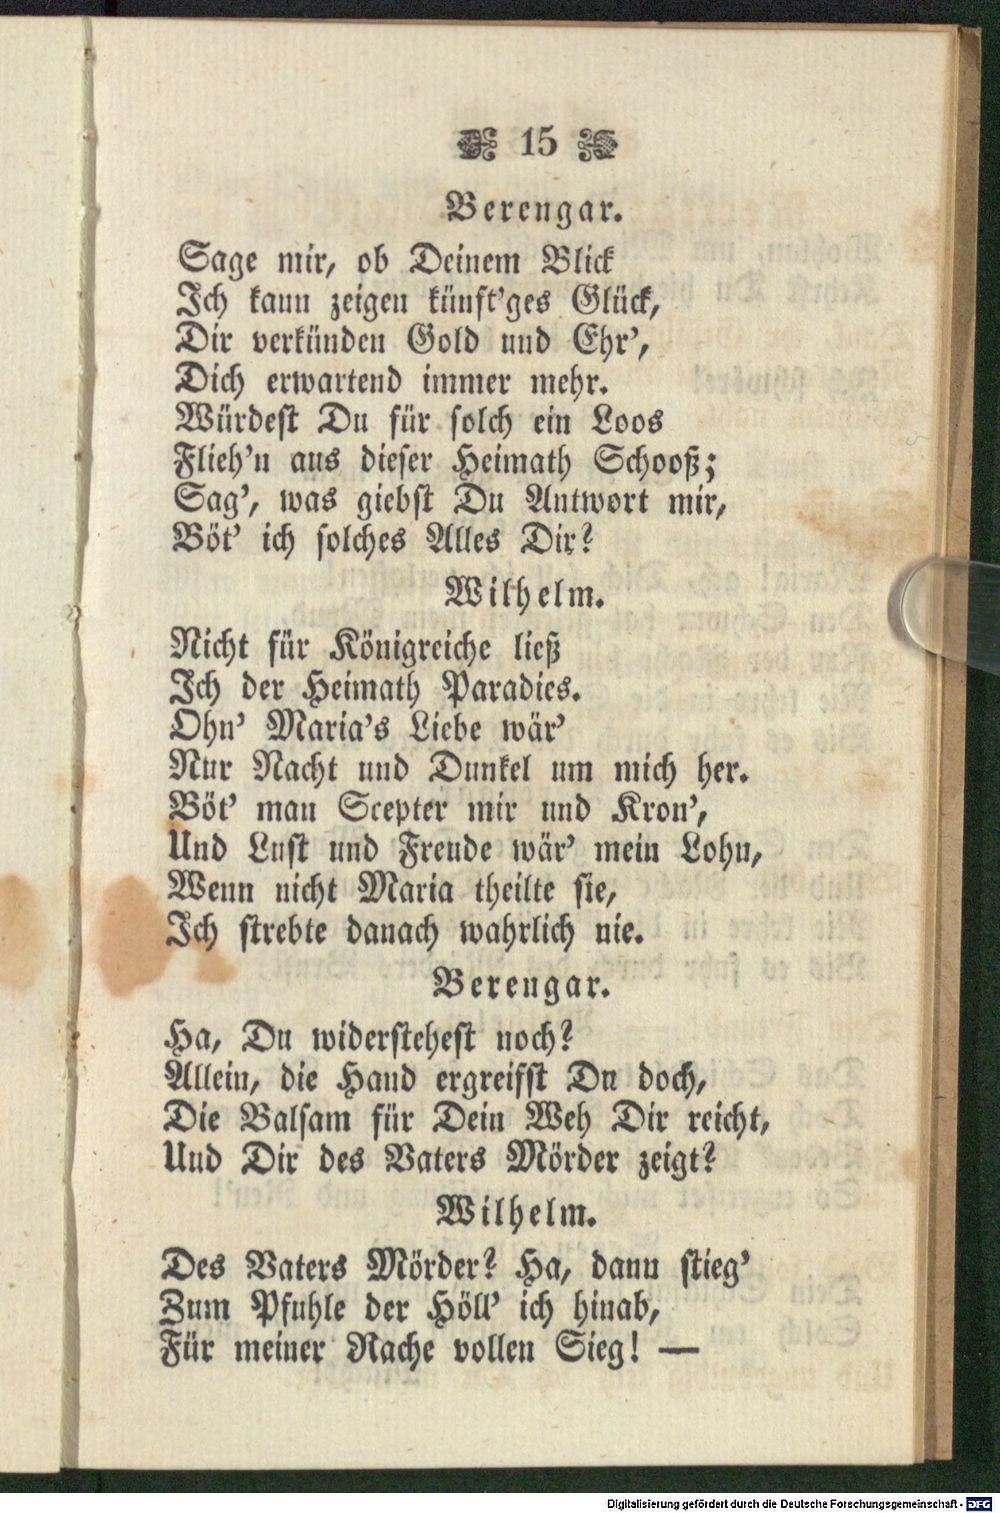 15
Berengar.
Sage mir, ob Deinem Blick
Ich kann zeigen künft'ges Glück,
Dir verkünden Gold und Ehr',
Dich erwartend immer mehr.
Würdest Du für solch ein Loos
Flieh'n aus dieser Heimath Schooß;
Sag', was giebst Du Antwort mir,
Böt' ich solches Alles Dir?
Wilhelm.
Nicht für Königreiche ließ
Ich der Heimath Paradies.
Ohn' Maria's Liebe wär'
Nur Nacht und Dunkel um mich her.
Böt' man Scepter mir und Kron',
Und Lust und Freude wär' mein Lohn,
Wenn nicht Maria theilte sie,
Ich strebte danach wahrlich nie.
Berengar.
Ha, Du widerstehest noch?
Allein, die Hand ergreifst Du doch,
Die Balsam für Dein Weh Dir reicht,
Und Dir des Vaters Mörder zeigt?
Wilhelm.
Des Vaters Mörder? Ha, dann stieg'
Zum Pfuhle der Höll' ich hinab,
Für meiner Rache vollen Sieg! —
Digitalisierung gefördert durch die Deutsche Forschungsgemeinschaft - DFG